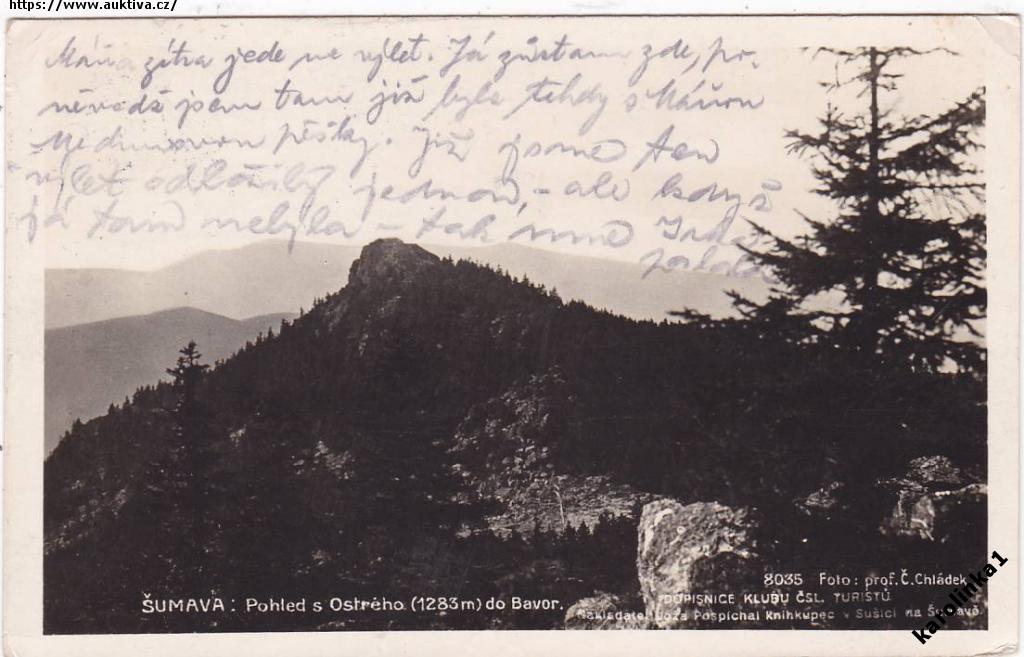 https://www.auktiva.cz/
Máňa zítra jede na výlet. Já zůstanu zde, po-
něvadž jsem tam již byla tehdy s Máňou
pěšky. Již jsme ten
výlet odložily jednou, - ale když
já tam nebyla - tak mne
poslala
8035 Foto: prof. Č. Chládek
ŠUMAVA: Pohled s Ostrého (1283m) do Bavor.
DOPISNICE KLUBU ČSL. TURISTŮ
Nakladatel Joža Pospíchal knihkupec v Sušici na Šumavě.
karolinka1